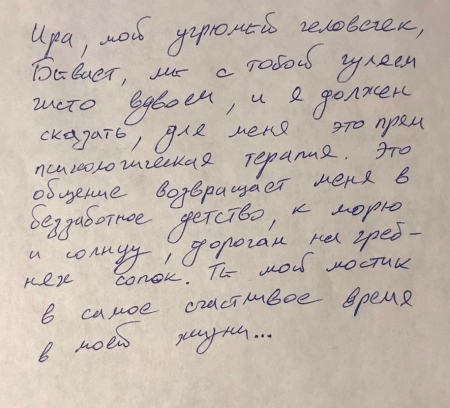 Ира, мой угрюмый человечек,
Бывает, мы с тобой гуляем
чисто вдвоем, и я должен
сказать, для меня это прям
психологическая терапия. Это
общение возвращает меня в
беззаботное детство, к морю
и солнцу, дорогам на греб-
нях сопок. Ты мой мостик
в самое счастливое время
в моей жизни...